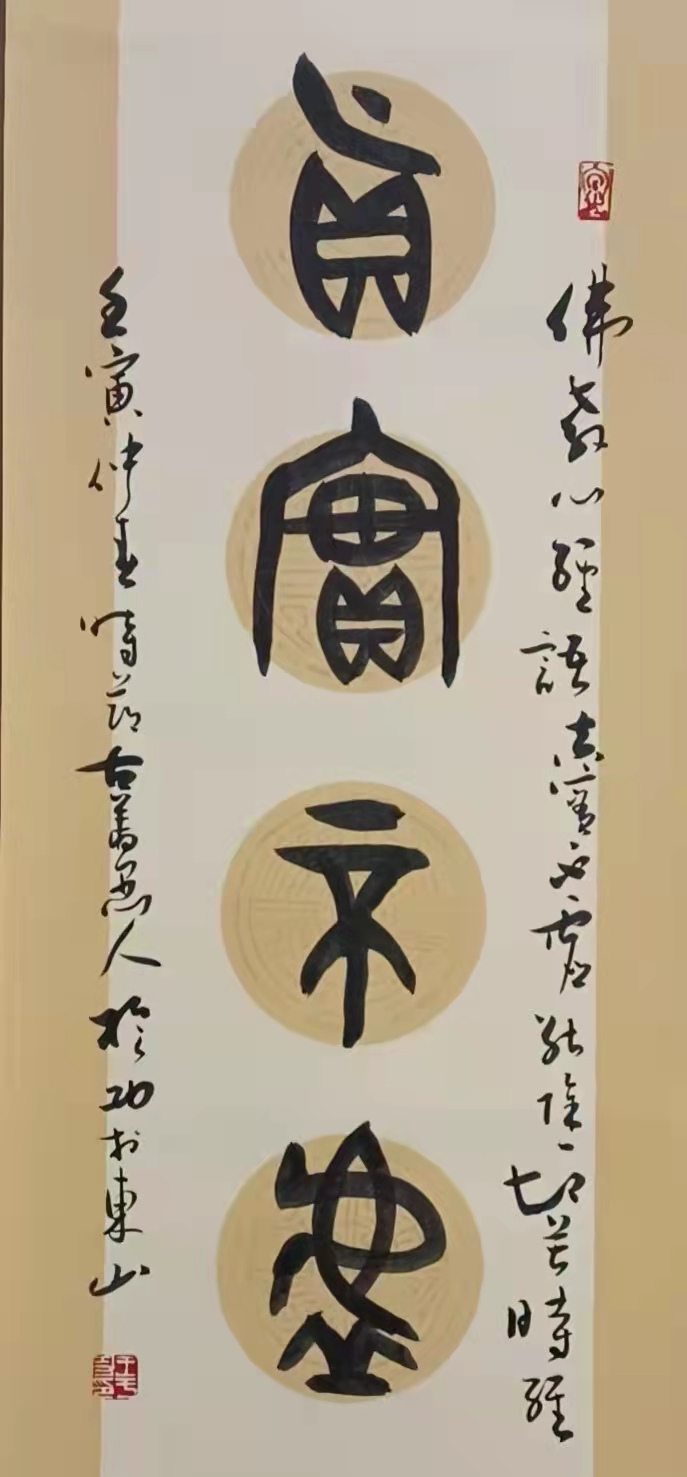 佛教心經語真實不虛能除一切苦時經
真實不虛
壬寅仲春時節古人於東山